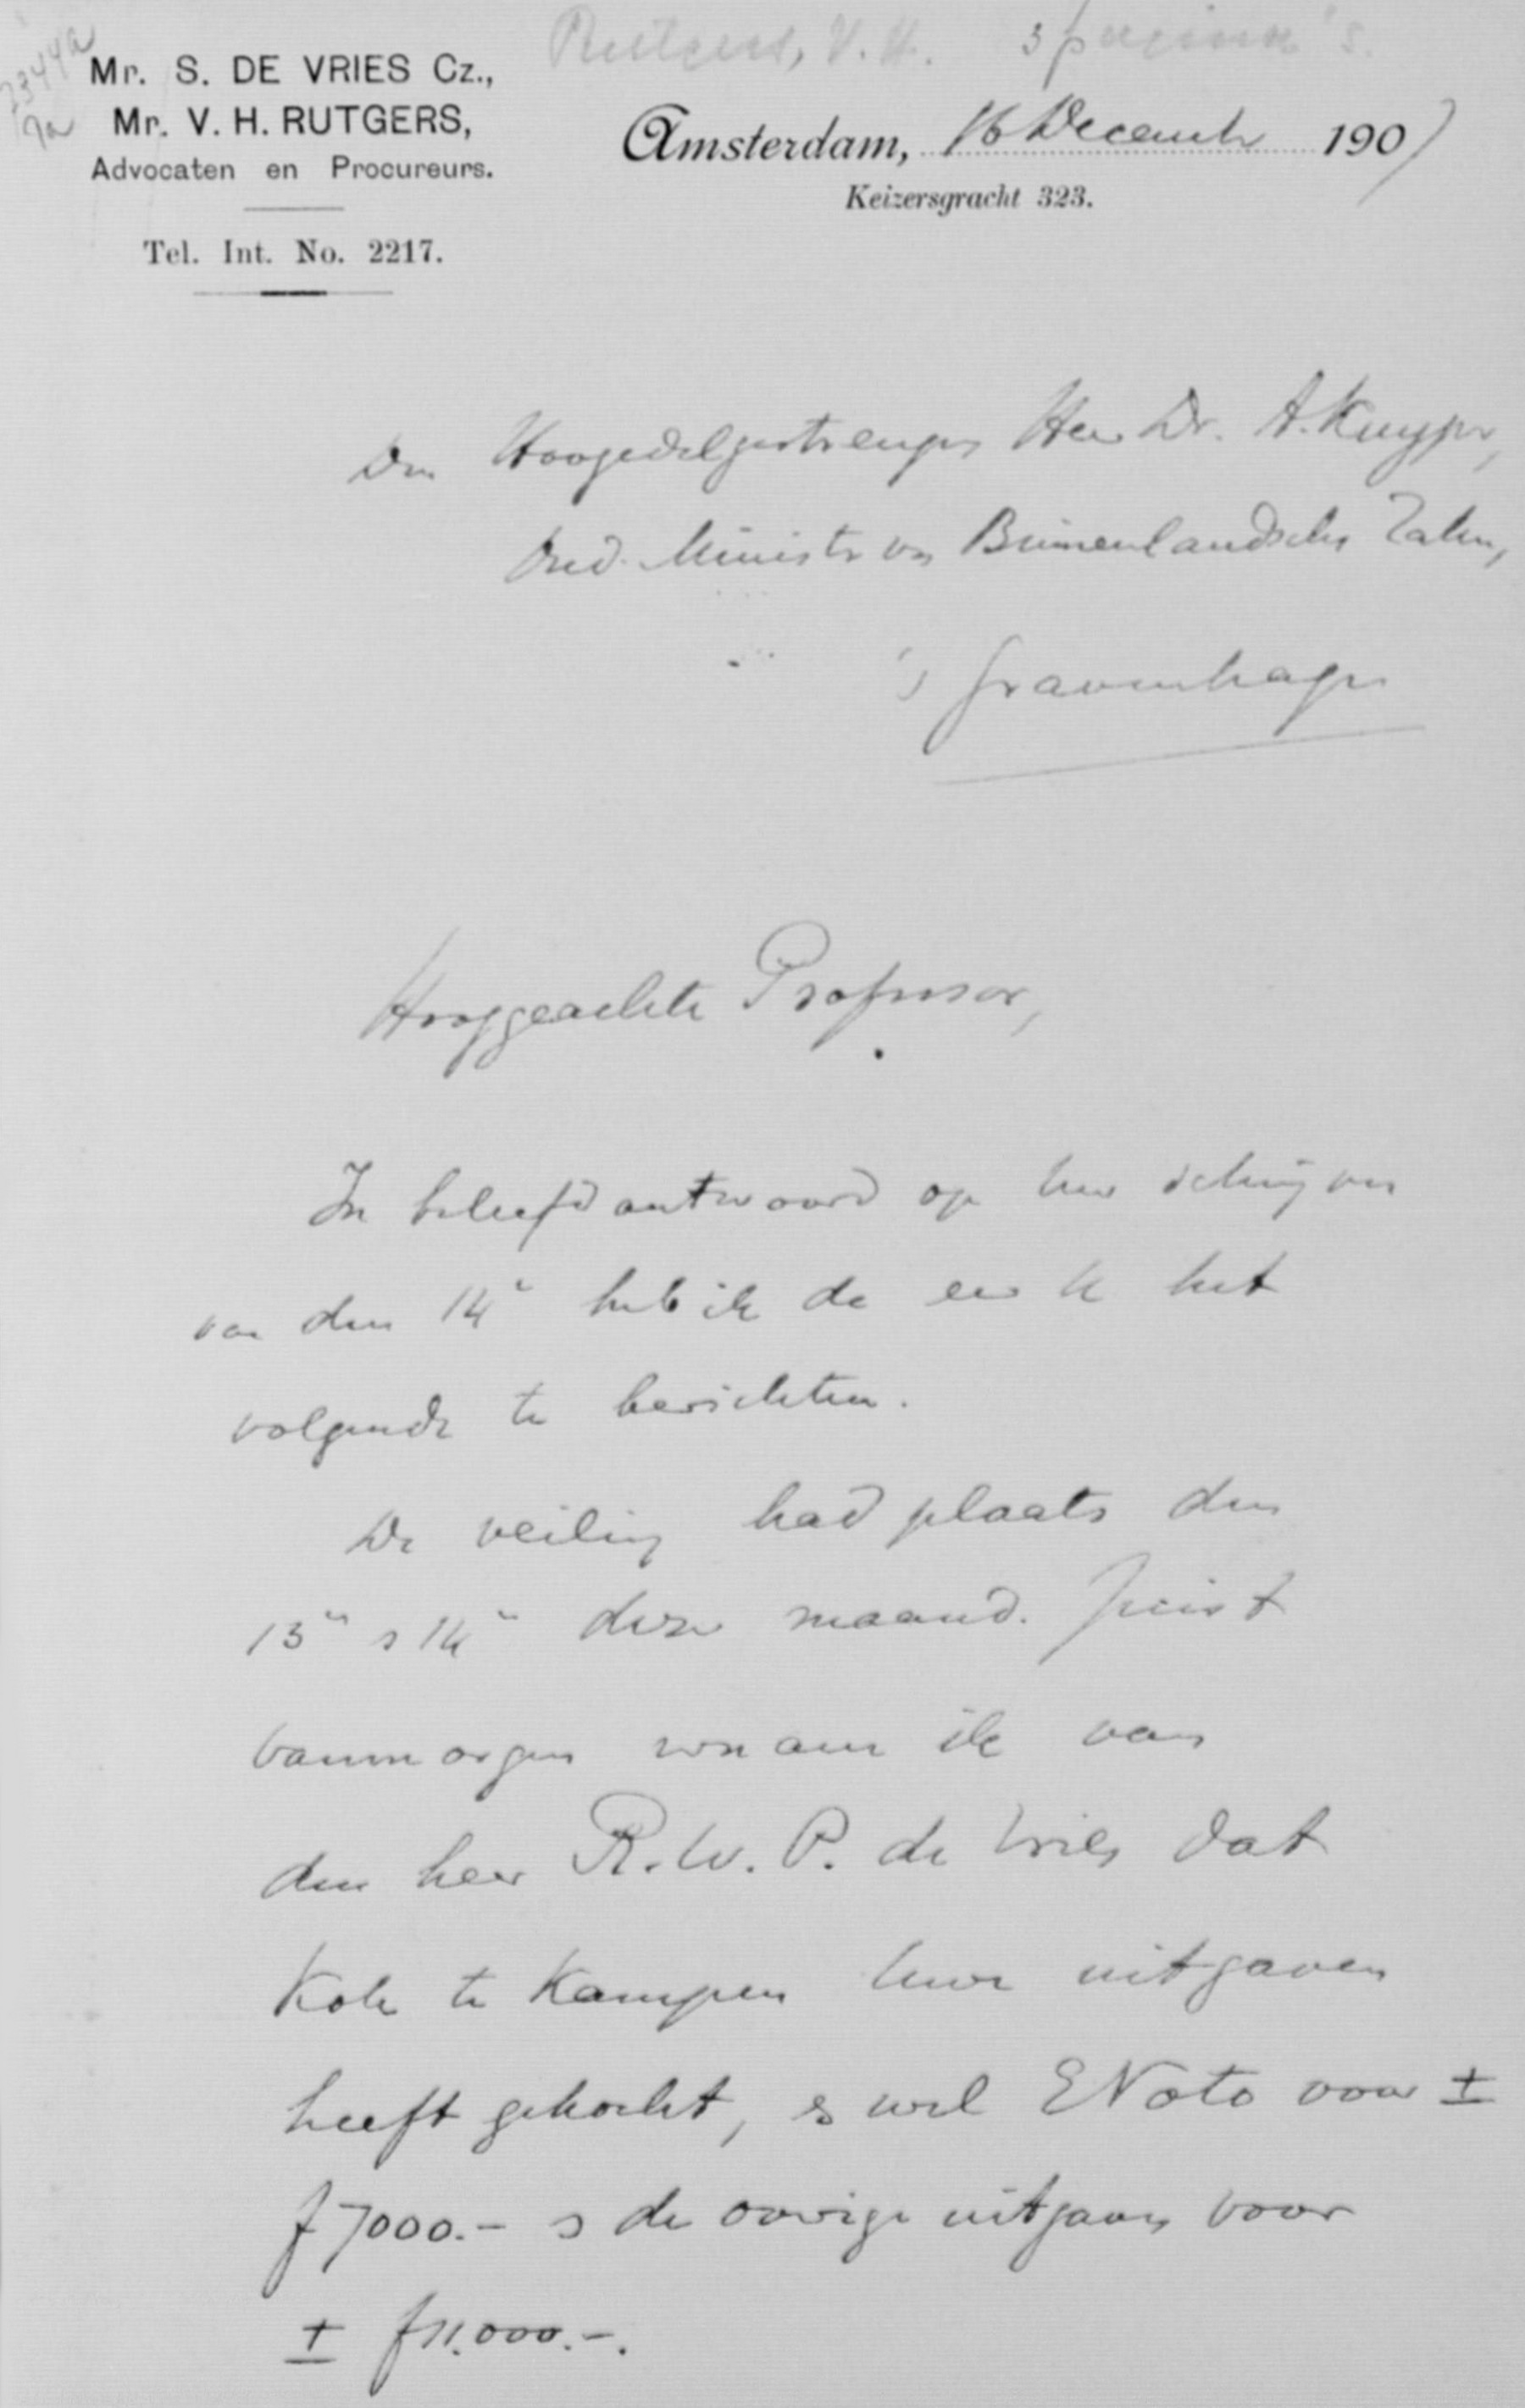 Rutgers, V. H. 3 pagina's.
Mr. S. DE VRIES Cz.,
Mr. V. H. RUTGERS,
Advocaten en Procureurs.
Tel. Int. No. 2217.
Amsterdam, 16 December 1907
Keizersgracht 323.
Den Hoogedelgestrengen Heer Dr. A. Kuyper,
Oud. Minister van Binnenlandsche Zaken,
's Gravenhage
Hooggeachte Professor,
In beleefd antwoord op Uw schrijven
van den 14e heb ik de eer U het
volgende te berichten.
De veiling had plaats den
13en & 14en dezer maand. Juist
vanmorgen vernam ik van
den heer R. W. P. de Vries dat
Kok te Kampen Uwe uitgaven
heeft gekocht, & wel E Voto voor ±
f 7000.- & de overige uitgaven voor
± f 11.000.-.